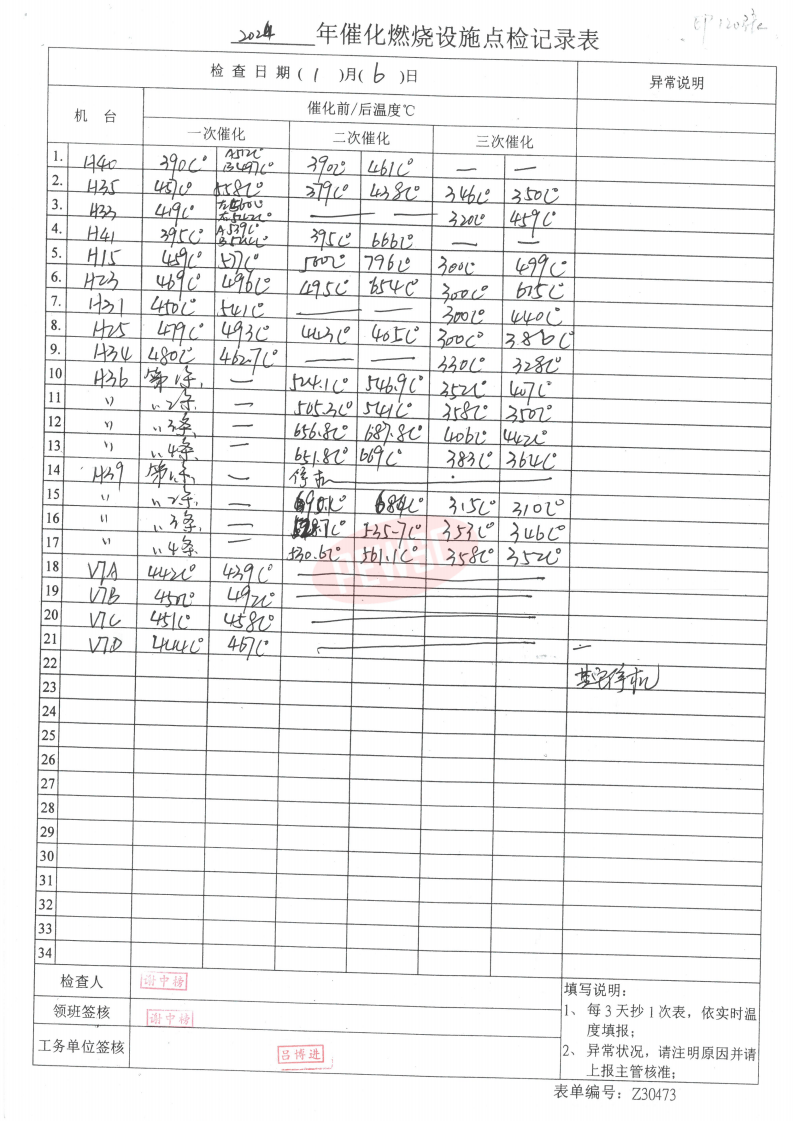 2024 年催化燃烧设施点检记录表
检查日期( 1 )月( 6 )日 异常说明
机 台 催化前/后温度℃
一次催化 二次催化 三次催化
1. H40 390C° A512C° B497C° 390C° 461C° — —
2. H35 457C° 558C° 379C° 438C° 346C° 350C°
3. H33 419C° 左560C° 右542C° — — 320C° 459C°
4. H41 395C° A539C° B524C° 395C° 666C° — —
5. H15 459C° 577C° 500C° 796C° 300C° 499C°
6. H23 469C° 496C° 495C° 654C° 300C° 615C°
7. H31 450C° 541C° 300C° 440C°
8. H25 479C° 493C° 443C° 405C° 300C° 386C°
9. H34 480C° 462.7C° — — 330C° 328C°
10 H36 第1条. — 524.1C° 546.9C° 352C° 407C°
11 〃 〃2条. — 505.3C° 541C° 358C° 350C°
12 〃 〃3条. — 656.8C° 687.8C° 406C° 442C°
13 〃 〃4条. — 651.8C° 669C° 383C° 364C°
14 H39 第1条. — 停机
15 〃 〃2条. — 690.1C° 684C° 315C° 310C°
16 〃 〃3条. — 528.7C° 535.7C° 353C° 346C°
17 〃 〃4条. — 530.6C° 561.1C° 358C° 352C°
18 V7A 442C° 439C° —
19 V7B 450C° 492C° —
20 V7C 451C° 458C° —
21 V7D 444C° 467C° — —
22
23 停机
24
25
26
27
28
29
30
31
32
33
34
检查人 谢中榜
领班签核 谢中榜
工务单位签核 吕博进
填写说明:
1、每3天抄1次表，依实时温
度填报;
2、异常状况，请注明原因并请
上报主管核准;
表单编号: Z30473